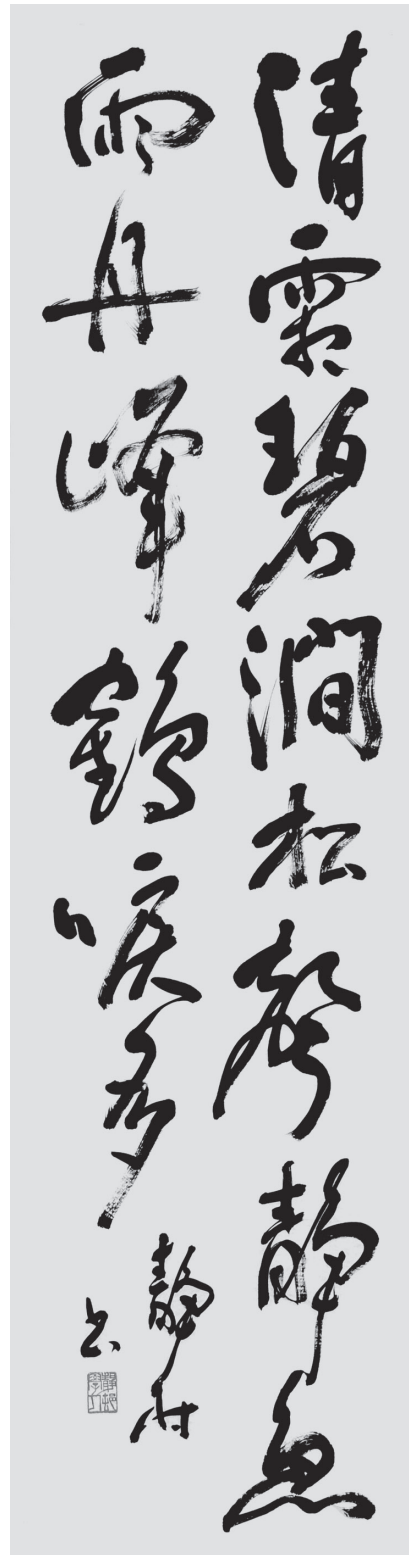 清霜碧澗松聲靜急
雨丹峰鶴唳多
靜村
書